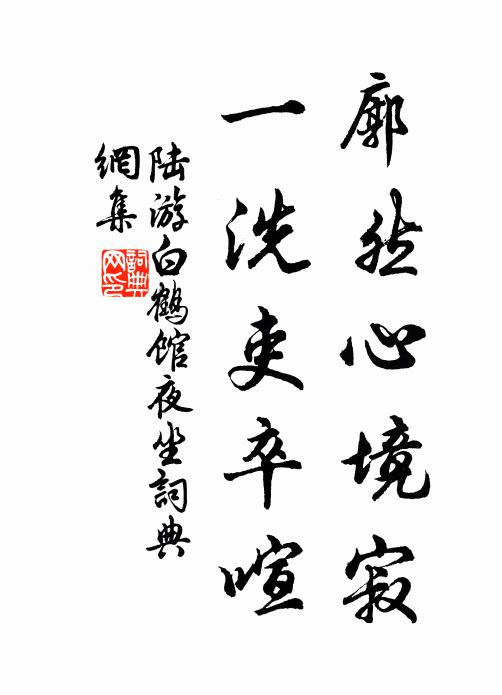 廓然心境寂
一洗吏卒喧
陆游白鶴馆夜坐詞典
網集
詞典
网印